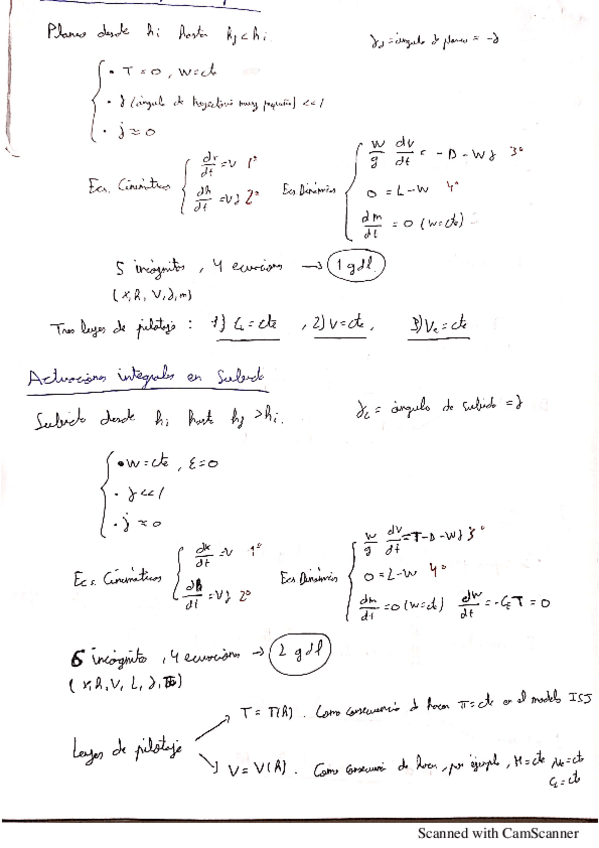 Planeo desde hi hasta hj < hi. γd = ángulo d planeo = -γ
• T = 0, W = cte
• γ (ángulo de trayectoria muy pequeño) << 1
• γ̇ ≈ 0
Ecs. Cinemáticas dx/dt = V 1° dh/dt = Vγ 2° Ecs Dinámicas W/g dV/dt = -D - Wγ 3°
0 = L - W 4°
dm/dt = 0 (W = cte)
5 incógnitas, 4 ecuaciones → 1 gdl.
(x, h, V, γ, m)
Tres leyes de pilotaje: 1) CL = cte, 2) V = cte, 3) Ve = cte
Actuaciones integrales en Subida
Subida desde hi hasta hj > hi. γc = ángulo de subida = γ
• W = cte, ε = 0
• γ << 1
• γ̇ ≈ 0
Ecs. Cinemáticas dx/dt = V 1° dh/dt = Vγ 2° Ecs Dinámicas W/g dV/dt = T - D - Wγ 3°
0 = L - W 4°
dm/dt = 0 (W = cte) dW/dt = -CE T = 0
6 incógnitas, 4 ecuaciones → 2 gdl
(x, h, V, L, γ, )
Leyes de pilotaje
T = T(h). Como consecuencia d hacer π = cte en el modelo ISJ
V = V(h). Como consecuencia de hacer, por ejemplo, M = cte
CL = cte
Scanned with CamScanner